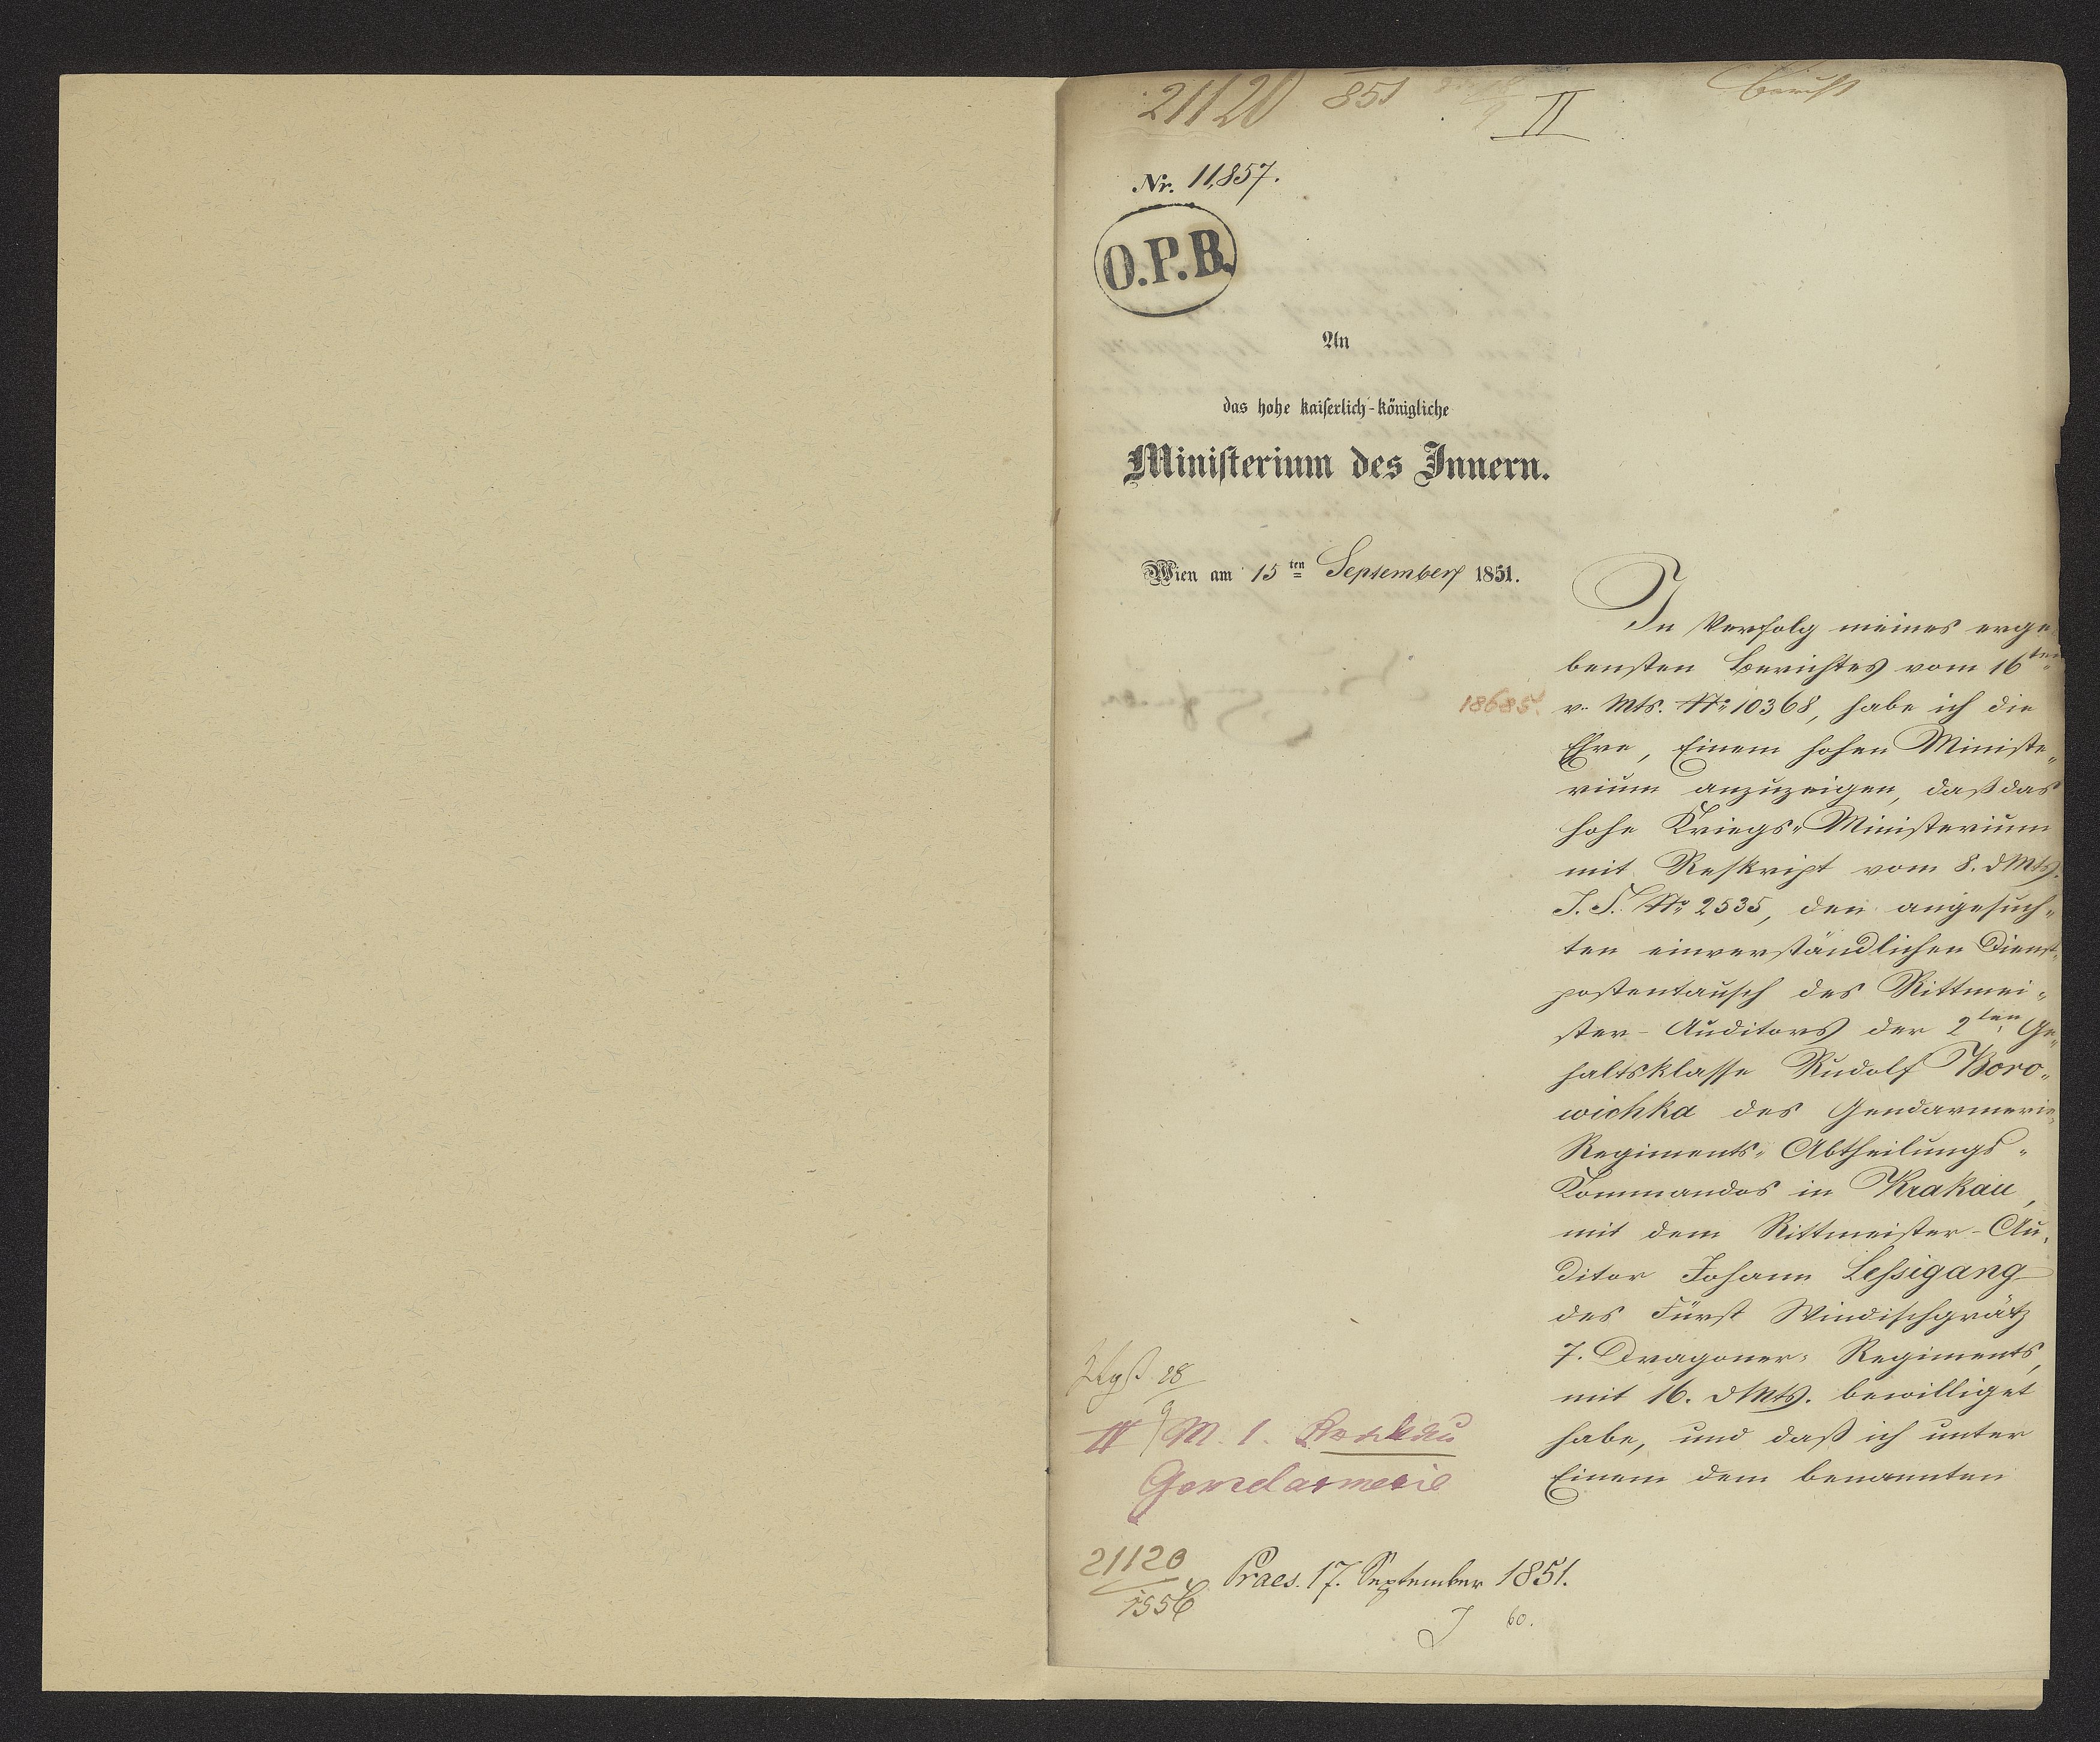 21120 851 II Bericht
Nr. 11,857.
O.P.B.
An
das hohe kaiserlich-königliche
Ministerium des Innern.
Wien am 15ten September 1851.
In Verfolg meines erge
bensten Berichtes vom 16ten
18685.
v. Mts. No 10368, habe ich die
Ehre, Einem hohen Ministe„
rium anzuzeigen, daß das
hohe Kriegs„Ministerium
mit Reskript vom 8. d Mts.
No 2535, den angesuch„
ten einverständlichen Dienst„
postentausch des Rittmei„
ster-Auditors der 2ten Ge„
haltsklasse Rudolf Boro„
wichka des Gendarmerie„
Regiments„Abtheilungs„
Kommandos in Krakau,
mit dem Rittmeister-Au„
ditor Johann Leßigang
des Fürst Windischgrätz
7. Dragoner„Regiments,
mit 16. d Mts. bewilliget
habe, und daß ich unter
Einem dem benannten
28/9
II M. I. Krakau
Gendarmerie
21120
1556
Praes. 17. September 1851.
60.